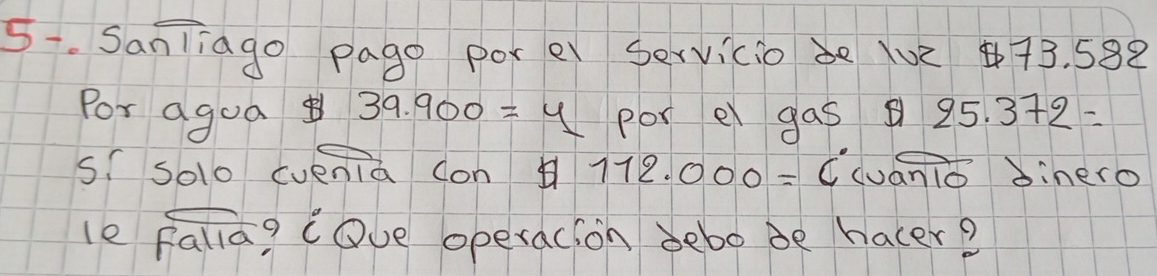 5-. Santiago pago por el servicio de luz $73.582
Por agua $ 39.900= y por el gas $ 25.372=
Si solo cuenta con $ 112.000= ¿cuanto dinero
le falta? ¿Que operación debo de hacer?